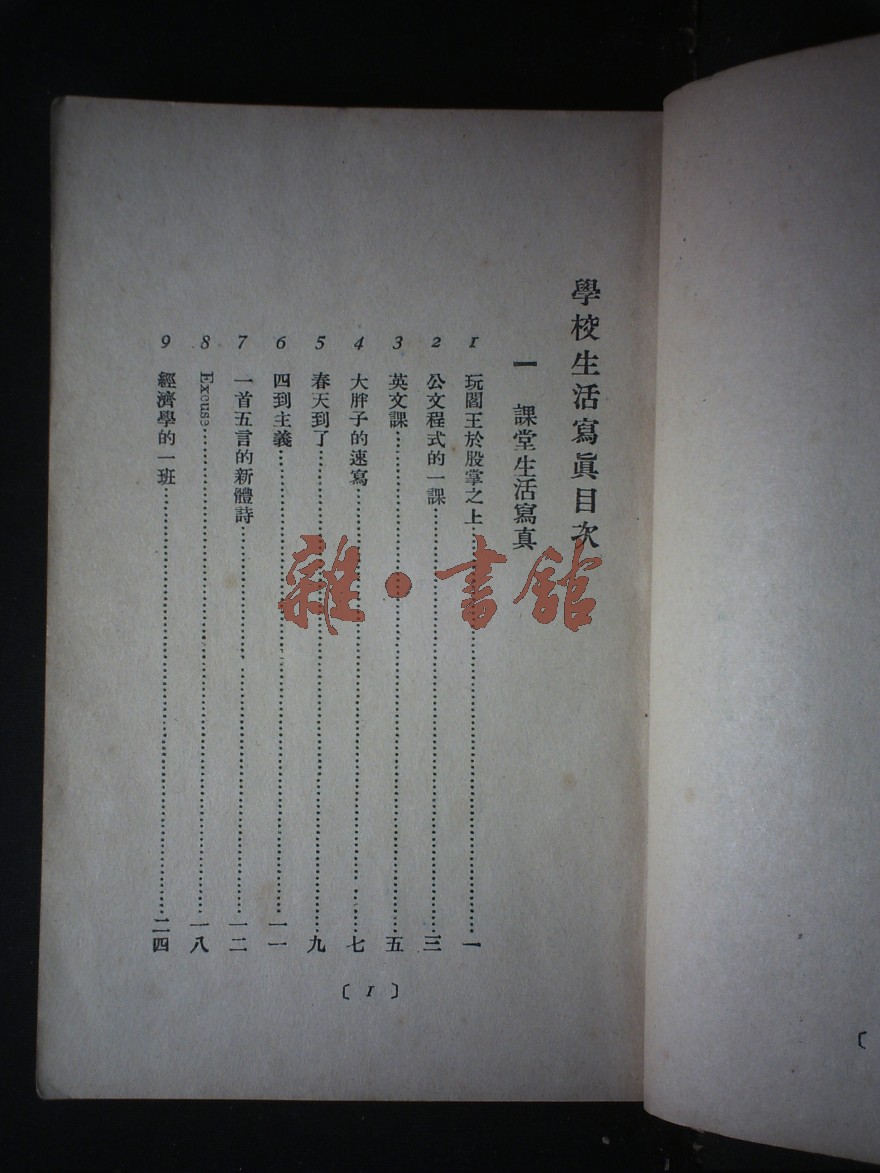 學校生活寫眞目次
一 課堂生活寫真
1 玩閻王於股掌之上……一
2 公文程式的一課……三
3 英文課……五
4 大胖子的速寫……七
5 春天到了……九
6 四到主義……一一
7 一首五言的新體詩……一二
8 Excuse……一八
9 經濟學的一班……二四
〔1〕
〔
雜·書館